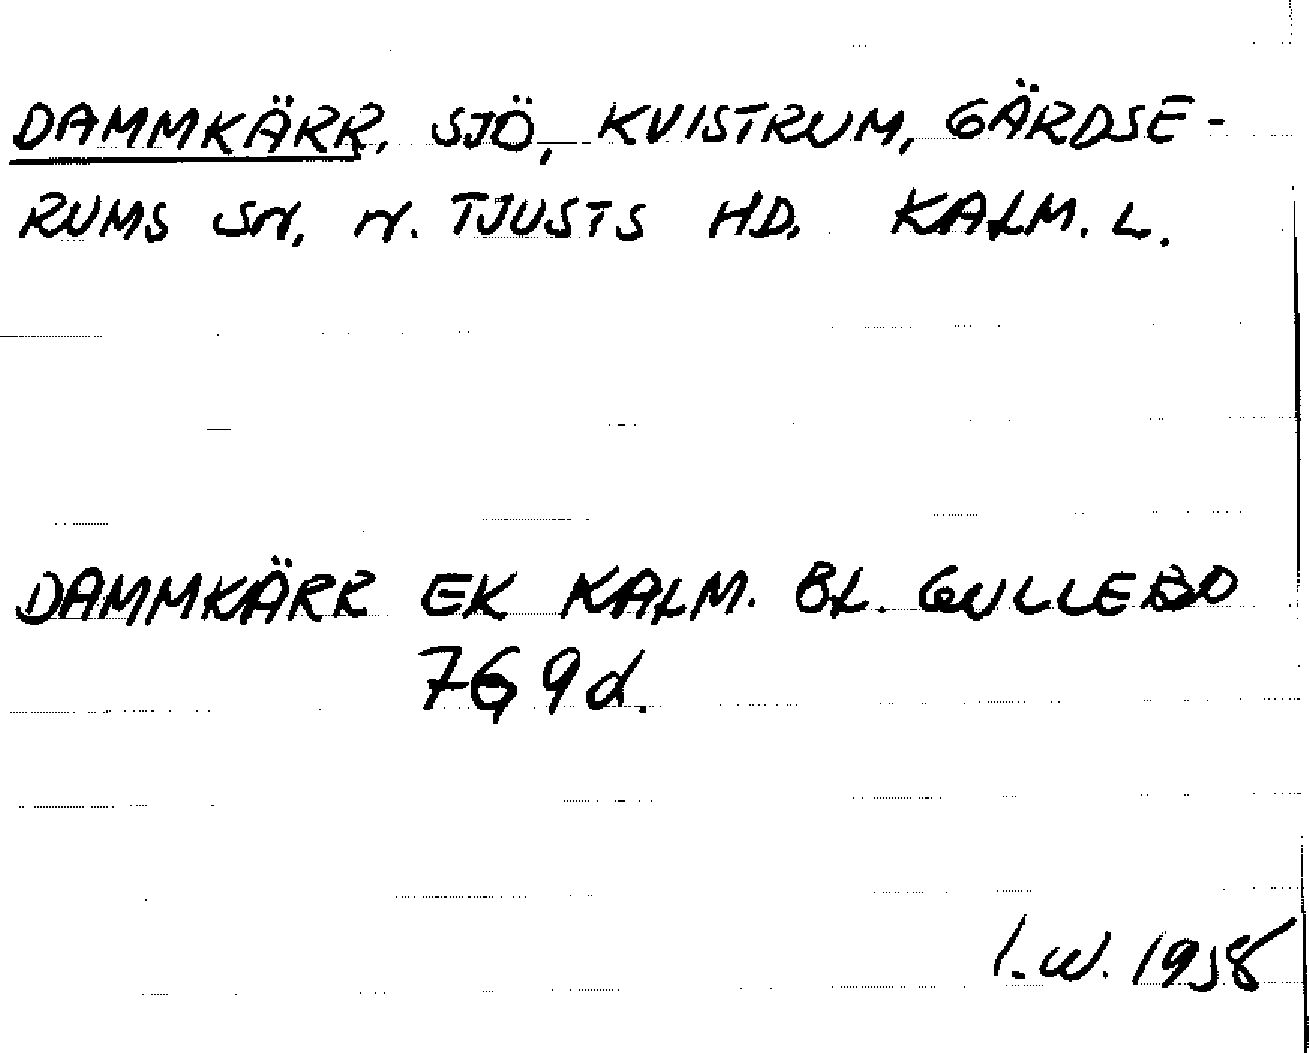 DAMMKÄRR, SJÖ, KVISTRUM, GÄRDSE-
RUMS SN, N. TJUSTS HD. KALM. L.
DAMMKÄRR EK KALM. BL. GULLEBO
769d.
I.W. 1958